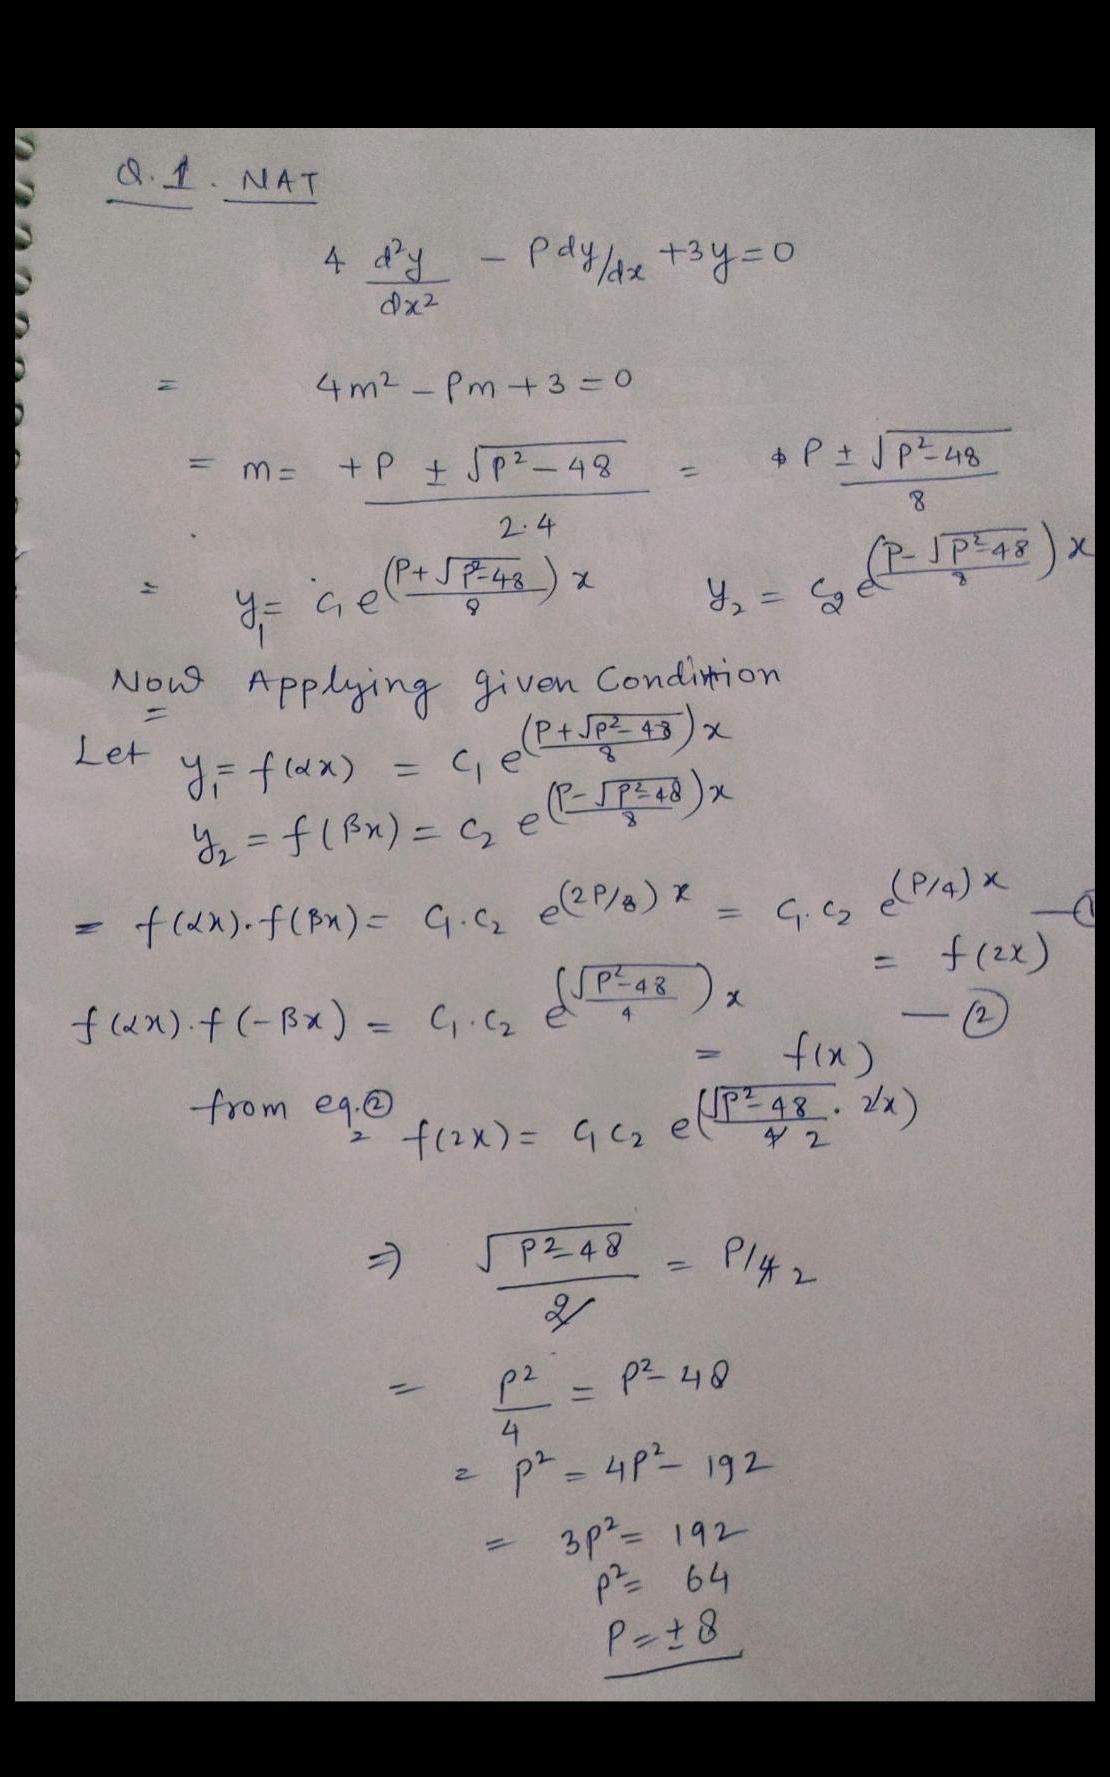 Q.1. NAT
4 d²y/dx² - P dy/dx + 3y = 0
= 4m² - Pm + 3 = 0
= m = +P ± √P² - 48 / 2.4 = P ± √P² - 48 / 8
= y₁ = C₁ e^(P+√P²-48 / 8) x y₂ = C₂ e^(P-√P²-48 / 8) x
Now Applying given Condition
=
Let y₁ = f(αx) = C₁ e^(P+√P²-48 / 8) x
y₂ = f(βx) = C₂ e^(P-√P²-48 / 8) x
= f(αx).f(βx) = C₁.C₂ e^(2P/8) x = C₁.C₂ e^(P/4) x — ①
= f(2x)
f(αx).f(-βx) = C₁.C₂ e^(√P²-48 / 4) x — ②
= f(x)
from eq.② f(2x) = C₁C₂ e^(√P²-48 / 4 2 . 2x)
⇒ √P²-48 / 2 = P/4 2
= P²/4 = P² - 48
= P² = 4P² - 192
= 3P² = 192
P² = 64
P = ± 8